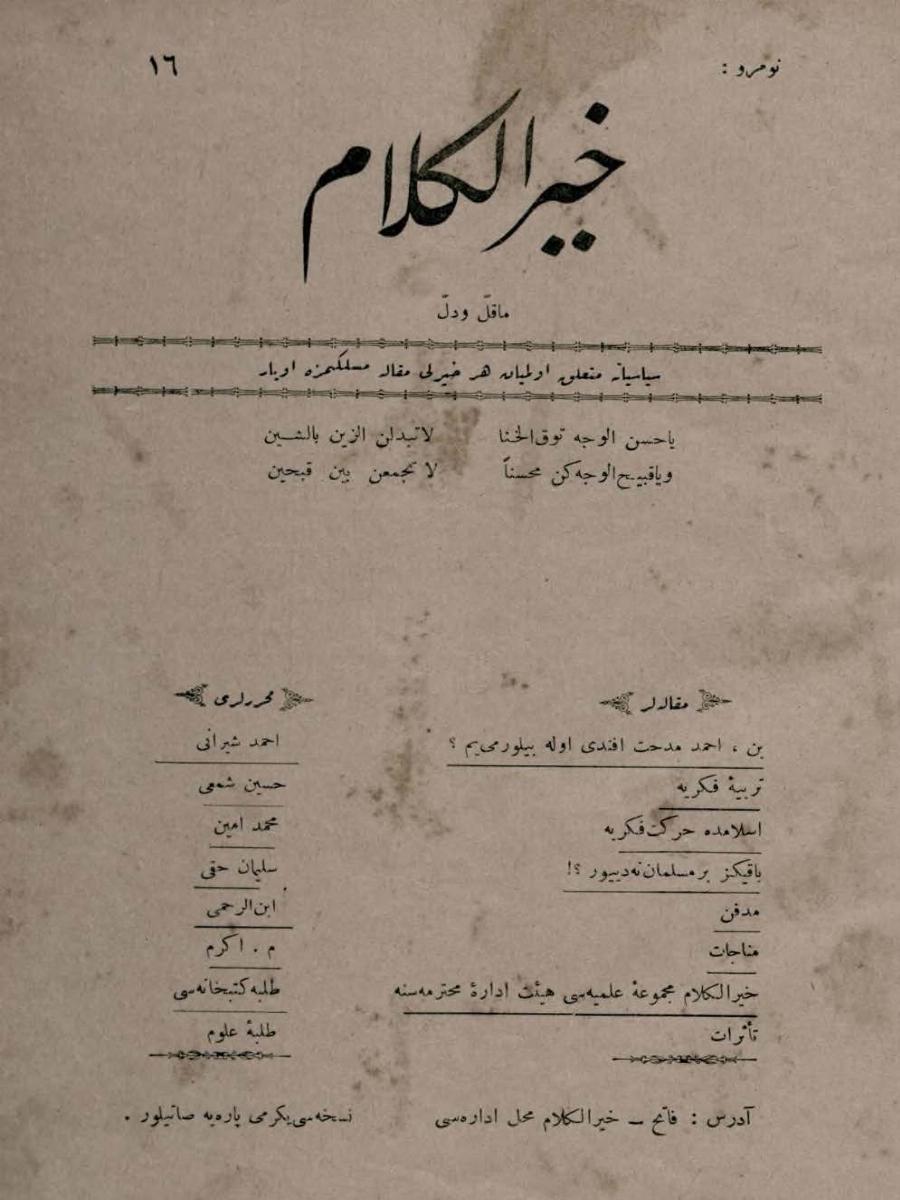 نومرو : ١٦
خيرالكلام
ماقلّ ودلّ
سياسياته متعلق اولميان هر خيرلى مقاله مسلكمزه اويار
ياحسن الوجه توق الخنا لاتبدلن الزين بالشين
وياقبيح الوجه كن محسناً لا تجمعن بين قبحين
مقاله لر محررلرى
بن ، احمد مدحت افندى اوله بيلورمى‌يم ؟ احمد شيرانى
تربيهٔ فكريه حسين شمعى
اسلامده حركت فكريه محمد امين
باقيكز بر مسلمان نه دييور ؟! سليمان حقى
مدفن ابن الرحمى
مناجات م . اكرم
خيرالكلام مجموعهٔ علميه‌سى هيئت ادارهٔ محترمه‌سنه طلبه كتبخانه‌سى
تأثرات طلبهٔ علوم
آدرس : فاتح – خيرالكلام محل اداره‌سى نسخه‌سى يكرمى پاره‌يه صاتيلور .